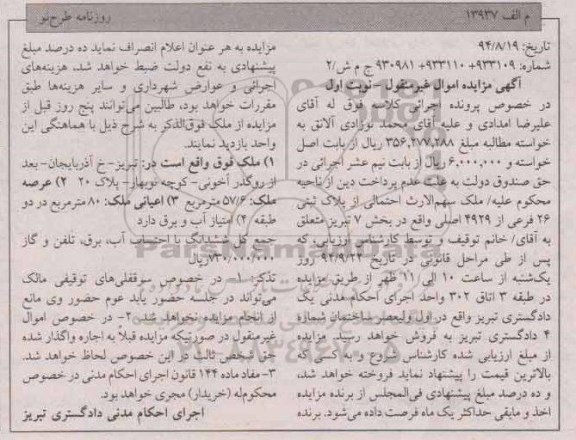 م الف ۱۳۹۳۷
روزنامه طرح‌نو
تاریخ: ۹۴/۸/۱۹
شماره: ۹۳۳۱۰۹+ ۹۳۳۱۱۰+ ۹۳۰۹۸۱ ج م ش/۲
آگهی مزایده اموال غیرمنقول - نوبت اول
در خصوص پرونده اجرائی کلاسه فوق له آقای
علیرضا امدادی و علیه آقای محمد نوزادی آلانق به
خواسته مطالبه مبلغ ۳۵۶,۲۷۷,۲۸۸ ریال از بابت اصل
خواسته و ۶,۰۰۰,۰۰۰ ریال از بابت نیم عشر اجرائی در
حق صندوق دولت به علت عدم پرداخت دین از ناحیه
محکوم علیه/ ملک سهم‌الارث احتمالی از پلاک ثبتی
۲۶ فرعی از ۴۹۲۹ اصلی واقع در بخش ۷ تبریز متعلق
به آقای/ خانم توقیف و توسط کارشناس ارزیابی، که
پس از طی مراحل قانونی در تاریخ ۹۴/۹/۲۲ روز
یک‌شنبه از ساعت ۱۰ الی ۱۱ ظهر از طریق مزایده
در طبقه ۳ اتاق ۳۰۲ واحد اجرای احکام مدنی یک
دادگستری تبریز واقع در اول ولیعصر ساختمان شماره
۴ دادگستری تبریز به فروش خواهد رسید. مزایده
از مبلغ ارزیابی شده کارشناس شروع و به کسی که
بالاترین قیمت را پیشنهاد نماید فروخته خواهد شد،
و ده درصد مبلغ پیشنهادی فی‌المجلس از برنده مزایده
اخذ و مابقی حداکثر یک ماه فرصت داده می‌شود. برنده
مزایده به هر عنوان اعلام انصراف نماید ده درصد مبلغ
پیشنهادی به نفع دولت ضبط خواهد شد، هزینه‌های
اجرائی و عوارض شهرداری و سایر هزینه‌ها طبق
مقررات خواهد بود، طالبین می‌توانند پنج روز قبل از
مزایده از ملک فوق‌الذکر به شرح ذیل با هماهنگی این
واحد بازدید نمایند.
۱) ملک فوق واقع است در: تبریز- خ آذربایجان- بعد
از روگذر آخونی- کوچه نوبهار- پلاک ۲۰ ۲) عرصه
ملک: ۵۷/۶ مترمربع ۳) اعیانی ملک: ۸۰ مترمربع در دو
طبقه ۴) امتیاز آب و برق دارد
جمع کل ششدانگ با احتساب آب، برق، تلفن و گاز
۷۳۰/۰۰۰/۰۰۰ ریال
تذکر: ۱- در خصوص سرقفلی‌های توقیفی مالک
می‌تواند در جلسه حضور یابد عوم حضور وی مانع
از انجام مزایده نخواهد شد. ۲- در خصوص اموال
غیرمنقول در صورتیکه مزایده قبلاً به اجاره واگذار شده
حق شخص ثالث در این خصوص لحاظ خواهد شد.
۳- مفاد ماده ۱۴۴ قانون اجرای احکام مدنی در خصوص
محکوم‌له (خریدار) مجری خواهد بود.
اجرای احکام مدنی دادگستری تبریز
ParsNamadData